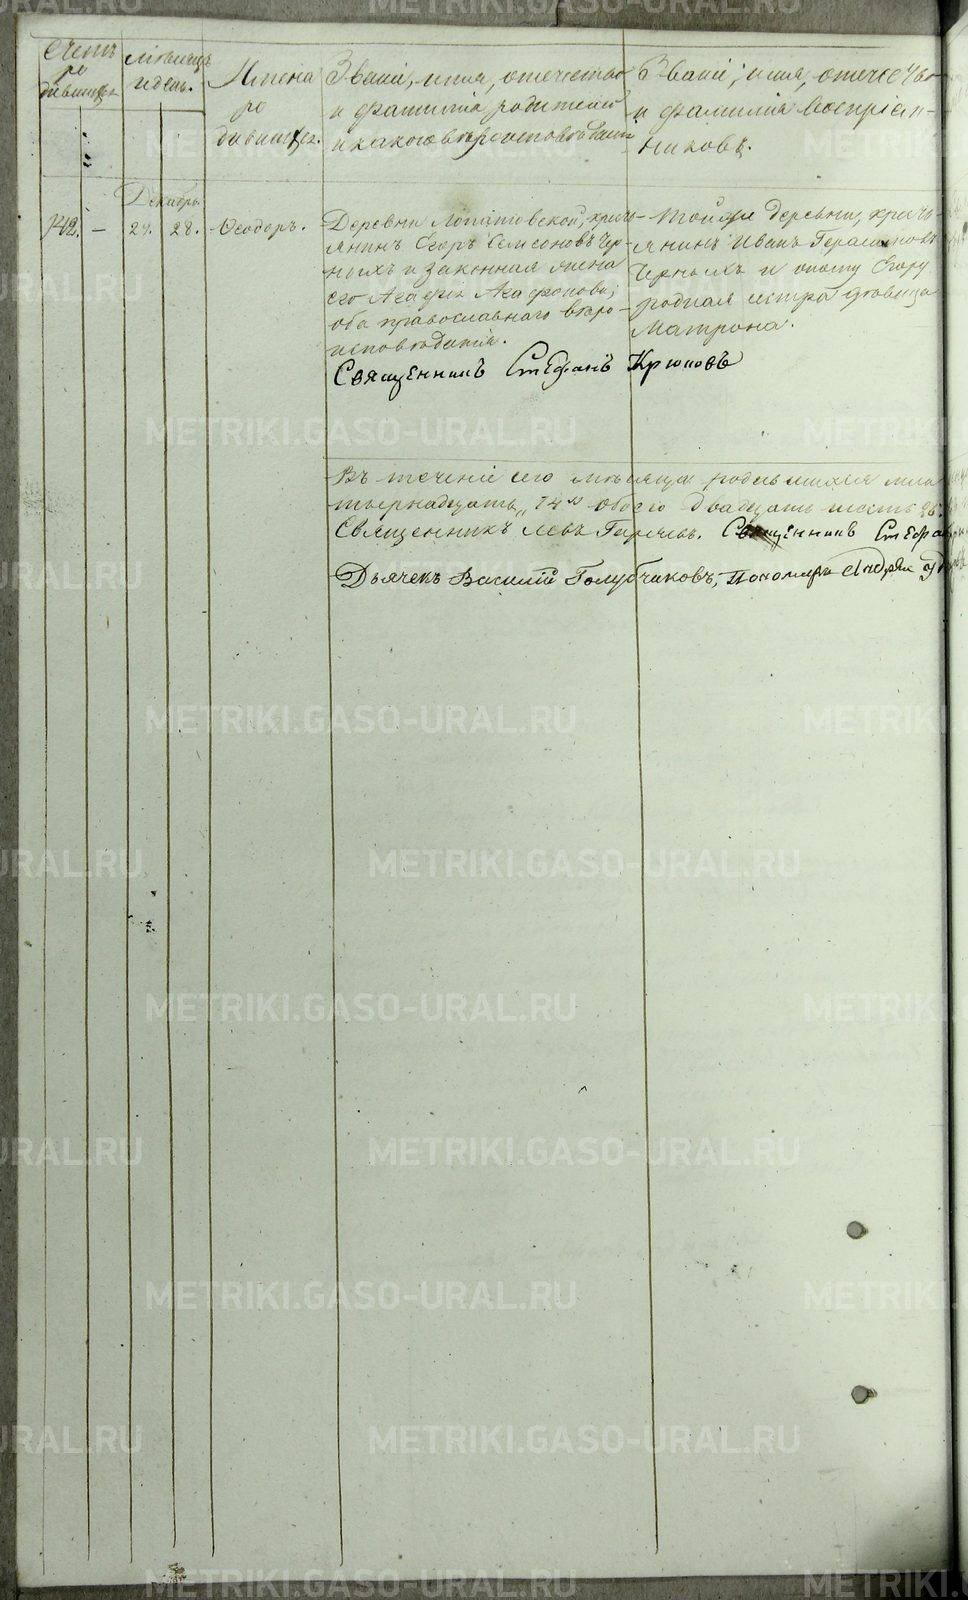 Счетъ ро дившихся
Мѣсяцъ и день.
Имена ро дившихся.
Званіе, имя, отечество
и фамилія родителей
и какого вѣроисповѣданія
Званіе, имя, отечество
и фамилія воспріем-
никовъ.
Декабрь
142. — 24. 28. Ѳеодоръ.
Деревни Лопатовской, кресть-
янинъ Егоръ Самсоновъ Чер-
ныхъ и законная жена
его Агафія Агафонова;
оба православнаго вѣро-
исповѣданія.
Той же деревни, кресть-
янинъ Иванъ Герасимовъ
Черныхъ и оному Егору
родная сестра дѣвица
Матрона.
Священникъ Стефанъ Крюковъ
Въ теченіе сего мѣсяца родившихся
четырнадцать 14ть обоего двадцать шесть 26.
Священникъ Левъ Священникъ Стефанъ
Дьячекъ Василій Голубчиковъ, Пономарь Андрей
METRIKI.GASO-URAL.RU